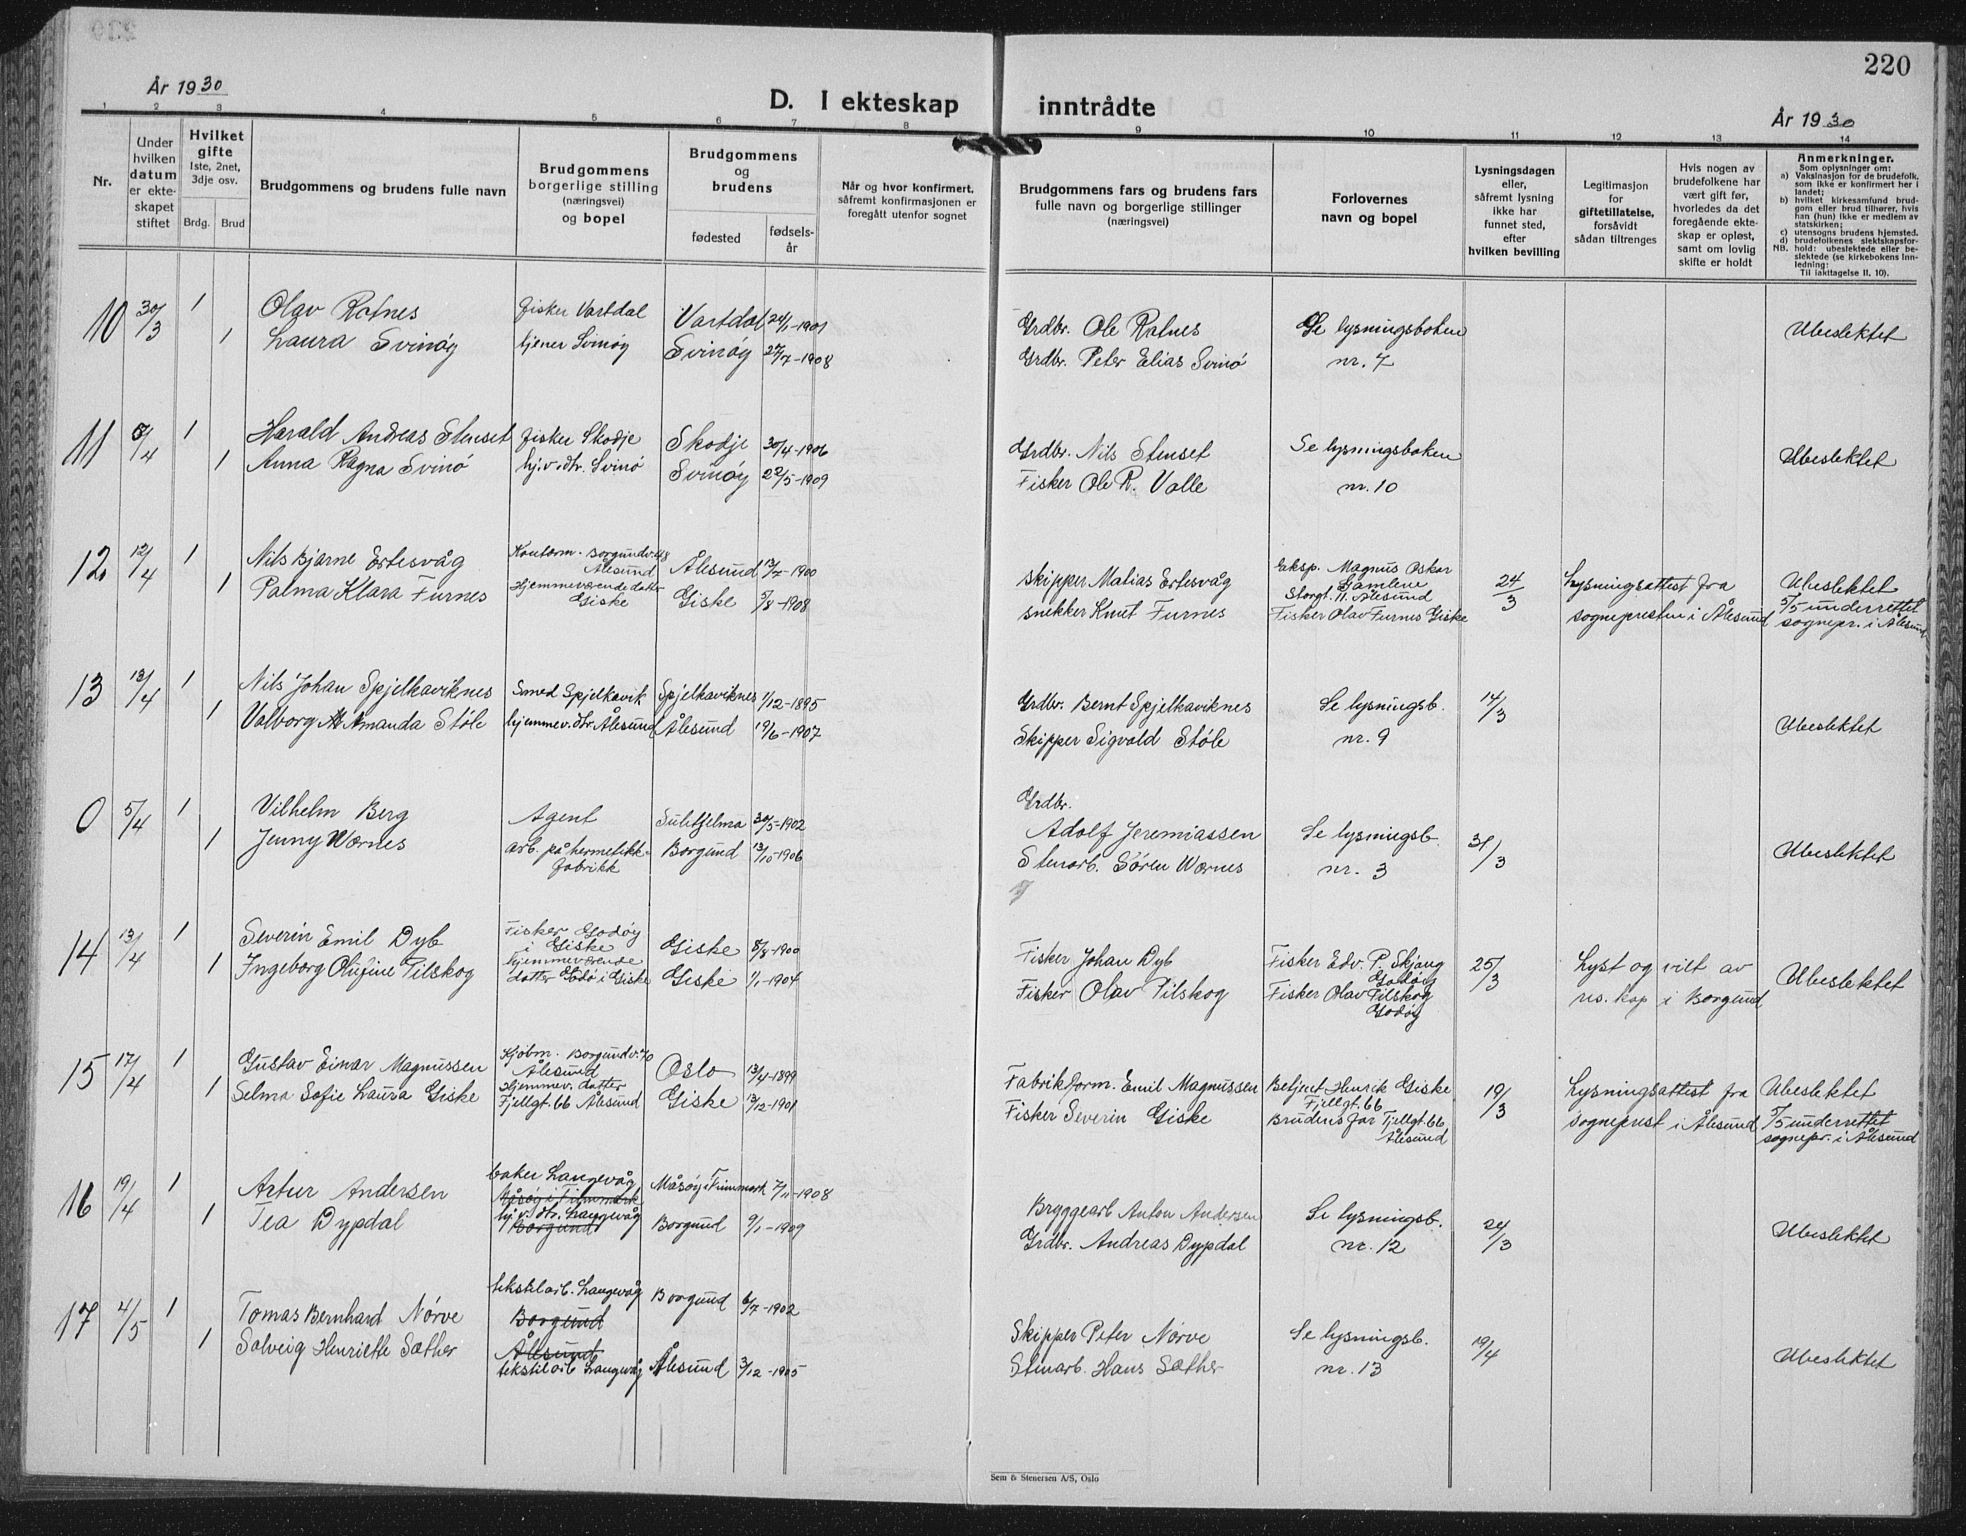 220
År 1930
D. I ekteskap inntrådte
År 1930
1 2 3 4 5 6 7 8 9 10 11 12 13 14
Nr.
Under hvilken datum er ekteskapet stiftet
Hvilket gifte
1ste, 2net, 3dje osv.
Brdg. Brud
Brudgommens og brudens fulle navn
Brudgommens borgerlige stilling (næringsvei) og bopel
Brudgommens og brudens
fødested
fødselsår
Når og hvor konfirmert, såfremt konfirmasjonen er foregått utenfor sognet
Brudgommens fars og brudens fars fulle navn og borgerlige stillinger (næringsvei)
Forlovernes navn og bopel
Lysningsdagen eller, såfremt lysning ikke har funnet sted, efter hvilken bevilling
Legitimasjon for giftetillatelse, forsåvidt sådan tiltrenges
Hvis nogen av brudefolkene har vært gift før, hvorledes da det foregående ekteskap er opløst, samt om lovlig skifte er holdt
Anmerkninger.
Som oplysninger om:
a) Vaksinasjon for de brudefolk, som ikke er konfirmert her i landet;
b) hvilket kirkesamfund brudgom eller brud tilhører, hvis han (hun) ikke er medlem av statskirken;
c) utensogns brudens hjemsted.
d) brudefolkenes slektskapsforhold: ubeslektede eller beslektede (se kirkebokens Innledning:
NB. Til iakttagelse II. 10).
10 30/3 1 Olav Rotnes fisker Vartdal Vartdal 24/1-1901 Grdbr. Ole Rotnes Se lysningsboken Ubeslektet
1 Laura Svinøy tjener Svinøy Svinøy 27/7-1908 Grdbr. Peter Elias Svinø nr. 7
11 6/4 1 Harald Andreas Stenset fisker Skodje Skodje 30/4-1906 Grdbr. Nils Stenset Se lysningsboken Ubeslektet
1 Anna Ragna Svinø hj.v. dtr. Svinø Svinøy 22/5-1909 Fisker Ole R. Valle nr. 10
12 12/4 1 Nils Bjarne Ertesvåg Kontorm. Borgundv. 48 Ålesund Ålesund 13/7-1900 skipper Matias Ertesvåg Eksp. Magnus Oskar Gamlem Storgt. 11. Ålesund 24/3 Lysningsattest fra Ubeslektet
1 Palma Klara Furnes Hjemmeværende datter Giske Giske 5/8-1908 snekker Knut Furnes Fisker Olav Furnes Giske sognepresten i Ålesund 5/5 underrettet sognepr. i Ålesund
13 13/4 1 Nils Johan Spjelkaviknes Smed Spjelkavik Spjelkaviknes 1/12-1895 Grdbr. Bernt Spjelkaviknes Se lysningsb. 14/3
1 Valborg Amanda Støle hjemmev. dtr. Ålesund Ålesund 19/6-1907 Skipper Sigvald Støle nr. 9 Ubeslektet
0 5/4 1 Vilhelm Berg Agent Sulitjelma 30/5-1902 Grdbr. Adolf Jeremiassen Se lysningsb. 31/3 Ubeslektet
1 Jenny Wærnes arb. på hermetikkfabrikk Borgund 13/10-1906 Stenarb. Søren Wærnes nr. 3
14 13/4 1 Severin Emil Dyb Fisker Godøy i Giske Giske 8/8-1900 Fisker Johan Dyb Fisker Edv. P. Skjong Godøy 25/3 Lyst og vilt av Ubeslektet
1 Ingeborg Olufine Pilskog hjemmeværende datter Godø i Giske Giske 1/1-1904 Fisker Olav Pilskog Fisker Olav Pilskog Godøy res. kap i Borgund
15 17/4 1 Gustav Eimar Magnussen Kjøbm. Borgundv. 70 Ålesund Oslo 13/4-1899 Fabrikform. Emil Magnussen Betjent Henrik Giske Fjellgt. 66 19/3 Lysningsattest fra Ubeslektet
1 Selma Sofie Laura Giske Hjemmev. datter Fjellgt. 66 Ålesund Giske 13/12-1901 Fisker Severin Giske Brudens far Fjellgt. 66 Ålesund sogneprest i Ålesund 5/5 underrettet sognepr. i Ålesund
16 19/4 1 Artur Andersen baker Langevåg Måsøy i Finnmark Måsøy i Finnmark 7/11-1908 Bryggearb Anton Andersen Se lysningsb. 24/3 Ubeslektet
1 Tea Dypdal hj.v. dtr. Langevåg Borgund Borgund 9/1-1909 Grdbr. Andreas Dypdal nr. 12
17 4/5 1 Tomas Bernhard Nørve tekstilarb. Langevåg Borgund Borgund 6/7-1902 Skipper Peter Nørve Se lysningsb. 19/4 Ubeslektet
1 Solveig Henriette Sæther Ålesund tekstilarb Langevåg Ålesund 3/12-1905 Stenarb. Hans Sæther nr. 13
Sem & Stenersen A/S, Oslo